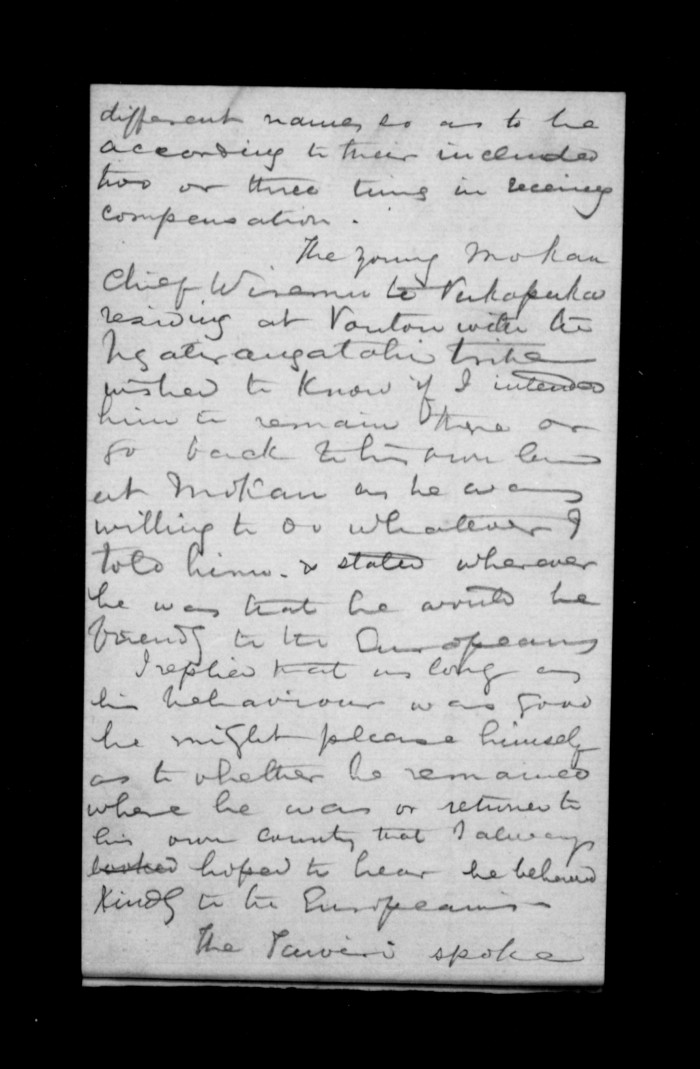 different names so as to be
according to their included
two or three times in receiving
compensation.
The young Mokau
Chief Wiremu te
residing at with the
Ngatirangatahi tribe
wished to know if I intended
him to remain there or
go back to his own land
at Mokau as he was
willing to do whatever I
told him. & stated wherever
he was that he would be
friendly to the Europeans
I replied that as long as
his behaviour was good
he might please himself
as to whether he remained
where he was or returned to
his own country that I always
looked hoped to hear he behaved
kindly to the Europeans
The spoke